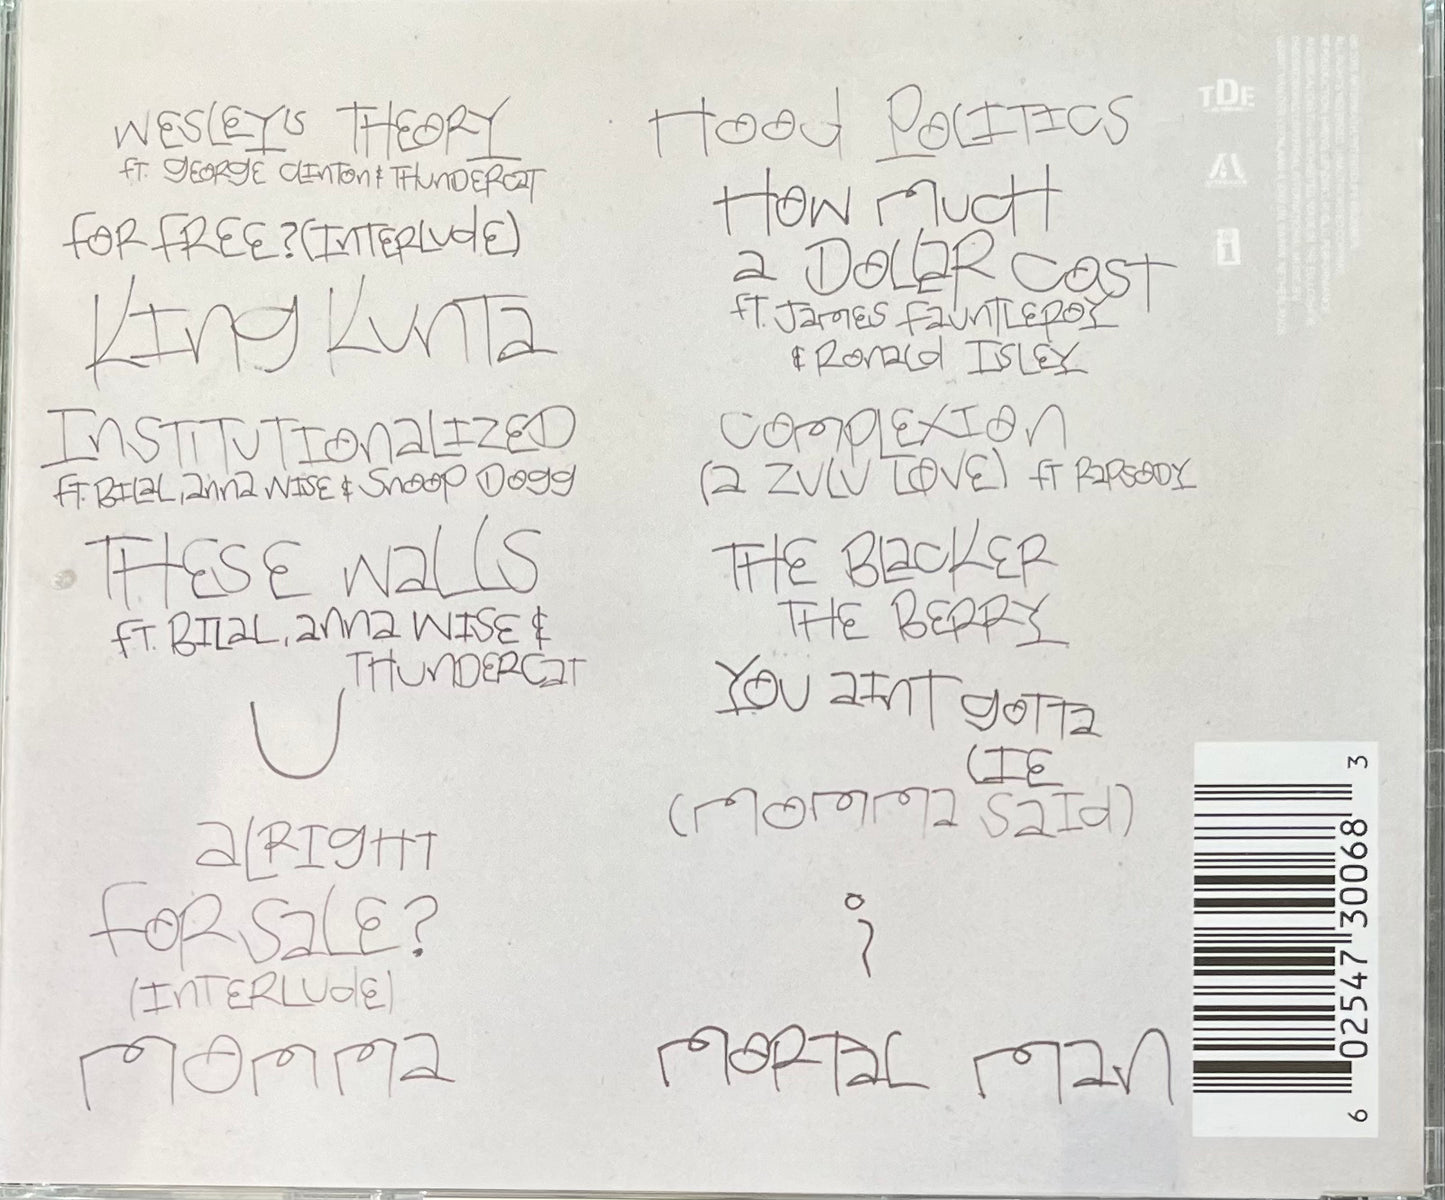 WESLEY'S THEORY
fT. gEORgE CLINTON & THUNDERCaT
fOR FREE? (INTERLUdE)
KINg KUNTa
INSTITUTIONaLIZED
fT. BILaL, aNNa WISE & SNOOP DOgg
THESE WaLLS
fT. BILaL, aNNa WISE &
THUNDERCaT
U
aLRIgHT
fOR SaLE?
(INTERLUdE)
MOMMa
HOOd POLITICS
HOW MUCH
a DOLLaR COST
fT. JaMES fAUNTLEROY
& RONaLd ISLEY
COMPLEXION
(a ZULU LOVE) fT RaPSODY
THE BLaCKER
THE BERRY
YOU aINT gOTTa
LIE
(MOMMa SaId)
i
MORTaL MaN
TDE
i
6 02547 30068 3